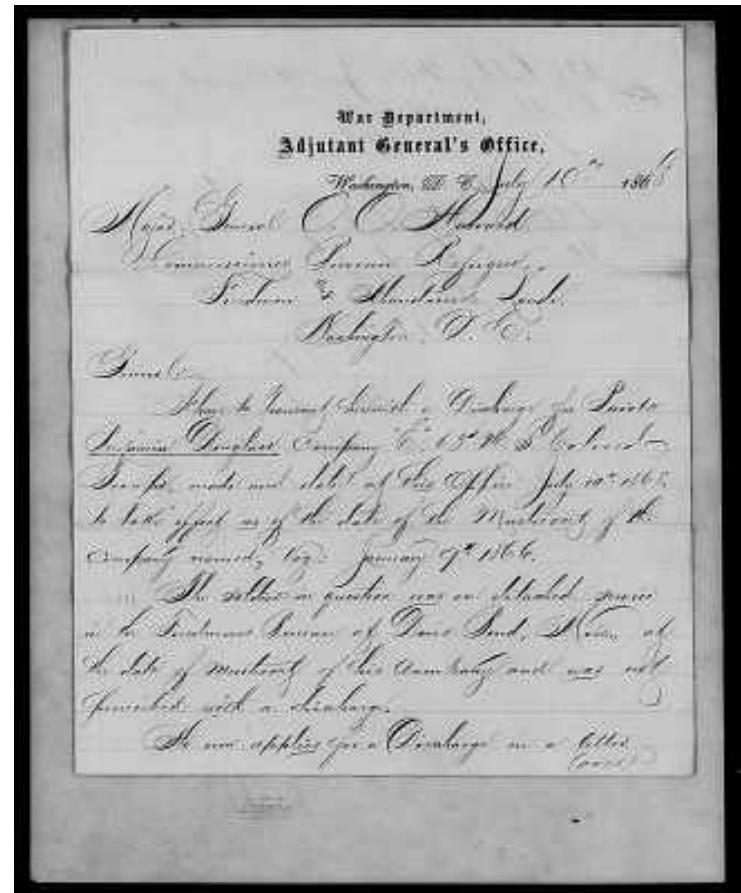 War Department,
Adjutant General's Office,
Washington, D. C. July 10th 1868
Major General O. O. Howard
Commissioner Bureau Refugees,
Freedmen & Abandoned Lands.
Washington, D. C.
General:
I have to transmit herewith a Discharge for Private
Benjamin Douglass, Company "C" 63d U. S. Colored
Troops, made and dated at this Office July 10th 1868.
to take effect as of the date of the Musterout of the
Company named, viz: January 9th 1866.
The soldier in question was on detached service
in the Freedmens Bureau at Davis Bend, Miss, at
the date of musterout of his Company and was not
furnished with a discharge.
He now applies for a Discharge in a letter
(over)